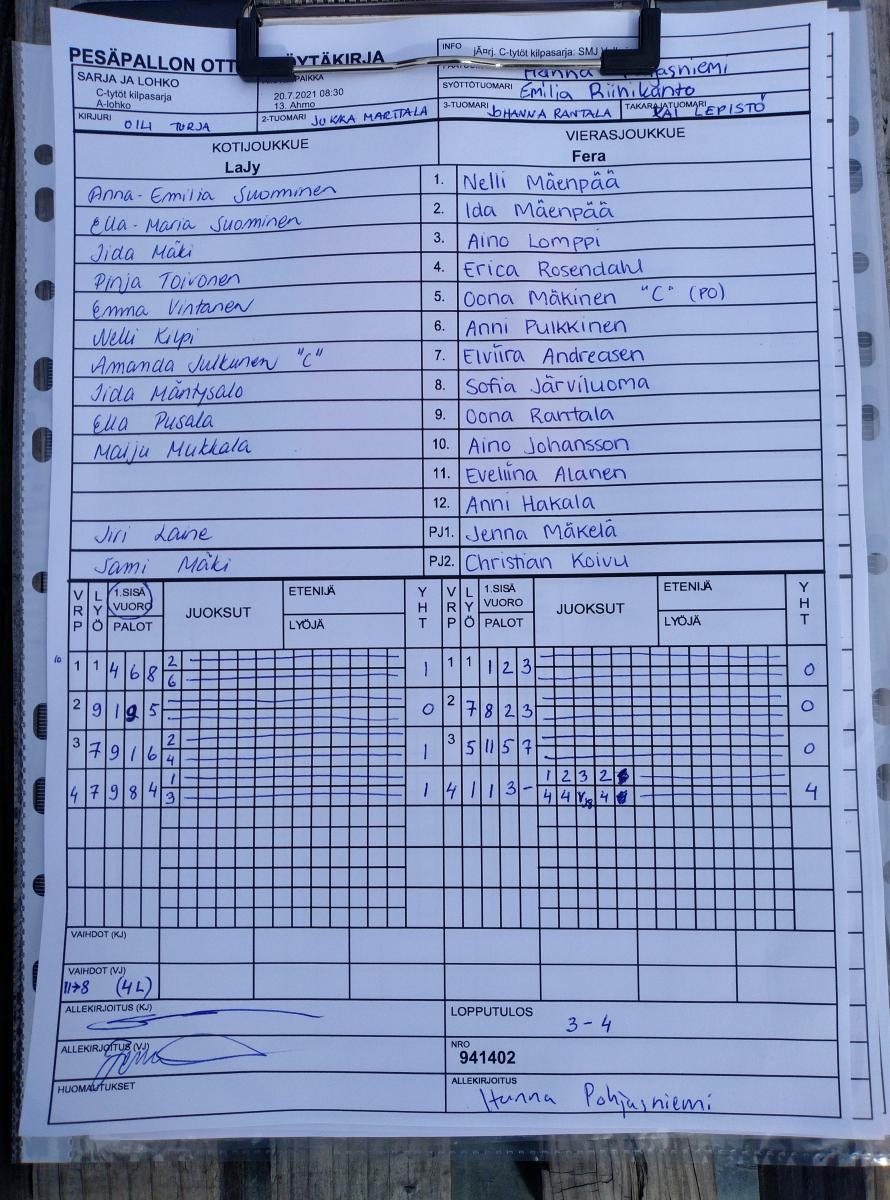 PESÄPALLON OTT ÖYTÄKIRJA
INFO järj. C-tytöt kilpasarja: SMJ
SARJA JA LOHKO
C-tytöt kilpasarja
A-lohko
PAIKKA
20.7.2021 08:30
13. Ahmo
Hanna Pohjasniemi
SYÖTTÖTUOMARI Emilia Riihikanto
KIRJURI OILI TURJA
2-TUOMARI JUKKA MARTTALA
3-TUOMARI JOHANNA RANTALA
TAKARAJATUOMARI KAI LEPISTÖ
KOTIJOUKKUE
LaJy
VIERASJOUKKUE
Fera
Anna-Emilia Suominen 1. Nelli Mäenpää
Ella-Maria Suominen 2. Ida Mäenpää
Iida Mäki 3. Aino Lomppi
Pinja Toivonen 4. Erica Rosendahl
Emma Vintanen 5. Oona Mäkinen "C" (PO)
Nelli Kilpi 6. Anni Pulkkinen
Amanda Julkunen "C" 7. Elviira Andreasen
Iida Mäntysalo 8. Sofia Järviluoma
Ella Pusala 9. Oona Rantala
Maiju Mukkala 10. Aino Johansson
11. Eveliina Alanen
12. Anni Hakala
Jiri Laine PJ1. Jenna Mäkelä
Sami Mäki PJ2. Christian Koivu
VRP LYÖ 1.SISÄ VUORO PALOT JUOKSUT ETENIJÄ LYÖJÄ YHT VRP LYÖ 1.SISÄ VUORO PALOT JUOKSUT ETENIJÄ LYÖJÄ YHT
10 1 1 4 6 8 2 6 1 1 1 1 2 3 0
2 9 1 9 5 0 2 7 8 2 3 0
3 7 9 1 6 2 4 1 3 5 11 5 7 0
4 7 9 8 4 1 3 1 4 1 1 3 - 1 2 3 2 4 4 4 4
VAIHDOT (KJ)
VAIHDOT (VJ)
11→8 (4L)
ALLEKIRJOITUS (KJ)
LOPPUTULOS
3-4
ALLEKIRJOITUS (VJ)
NRO
941402
HUOMAUTUKSET
ALLEKIRJOITUS
Hanna Pohjasniemi